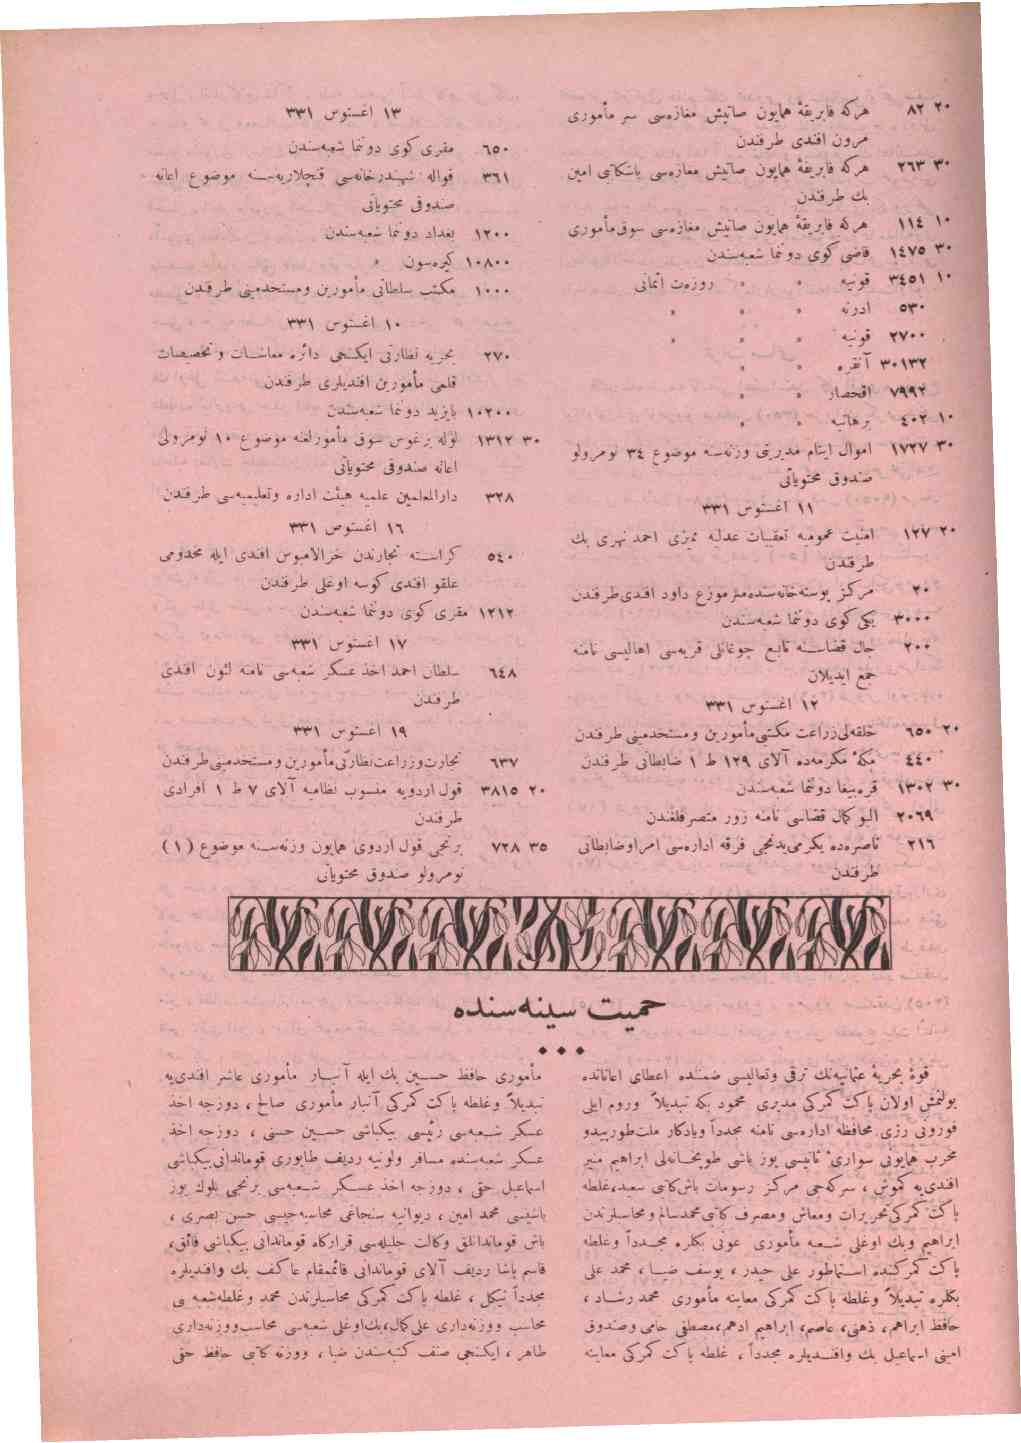 ٢٠ ٨٢ هركه فابريقهٔ همايون صاتيش مغازه‌سى سر مأمورى
مرون افندى طرفندن
٣٠ ٢٦٣ هركه فابريقهٔ همايون صاتيش مغازه‌سى باشكاتبى امين
بك طرفندن
١٠ ١١٤ هركه فابريقهٔ همايون صاتيش مغازه‌سى سوق‌مأمورى
٣٠ ١٤٧٥ قاضى كوى دوننما شعبه‌سندن
١٠ ٣٤٥١ قونيه » » روزه‌ت اثمانى
٥٣٠ ادرنه » » »
٢٧٠٠ قونيه » » »
٣٠١٣٢ آنقره » »
٧٩٩٢ اقحصار » »
١٠ ٤٠٢ برهانيه » »
٣٠ ١٧٢٧ اموال ايتام مديريتى وزنه‌سنه موضوع ٣٤ نومرولو
صندوق محتوياتى
١١ اغستوس ٣٣١
٢٠ ١٢٧ امنيت عموميه تعقيبات عدليه مميزى احمد نهرى بك
طرفندن
٢٠ مركز پوسته‌خانه‌سنده‌مدموزع داود افندى‌طرفندن
٣٠٠٠ يكى كوى دوننما شعبه‌سندن
٢٠٠ جال قضاسنه تابع چوغانلى قريه‌سى اهاليسى نامنه
جمع ايديلان
١٢ اغستوس ٣٣١
٢٠ ٦٥٠ خلقه‌لى‌زراعت مكتبى‌مأمورين ومستخدمينى طرفندن
٤٤٠ مكهٔ مكرمه‌ده آلاى ١٢٩ ط ١ ضابطانى طرفندن
٣٠ ١٣٠٢ قره‌بيغا دوننما شعبه‌سندن
٢٠٦٩ البو كمال قضاسى نامنه زور متصرفلغندن
٢١٦ ناصره‌ده يكرمى‌يدنجى فرقه اداره‌سى امراوضابطانى
طرفندن
١٣ اغستوس ٣٣١
٦٥٠ مقرى كوى دوننما شعبه‌سندن
٣٦١ قواله شهبندرخانه‌سى قنچلاريه‌سنه موضوع اعانه
صندوقى محتوياتى
١٢٠٠ بغداد دوننما شعبه‌سندن
١٠٨٠٠ كيره‌سون »
١٠٠٠ مكتب سلطانى مأمورين ومستخدمينى طرفندن
١٠ اغستوس ٣٣١
٢٧٠ بحريه نظارتى ايكنجى دائره معاشات وتخصيصات
قلمى مأمورين افنديلرى طرفندن
١٠٢٠٠ بايزيد دوننما شعبه‌سندن
٣٠ ١٣١٢ لوله برغوس سوق مأمورلغنه موضوع ١٠ نومرولى
اعانه صندوقى محتوياتى
٣٢٨ دارالمعلمين علميه هيئت اداره وتعليميه‌سى طرفندن
١٦ اغستوص ٣٣١
٥٤٠ كراسته تجارندن خرالامبوس افندى ايله مخدومى
علقو افندى كوسه اوغلى طرفندن
١٢١٢ مقرى كوى دوننما شعبه‌سندن
١٧ اغستوس ٣٣١
٦٤٨ سلطان احمد اخذ عسكر شعبه‌سى نامنه لئون افندى
طرفندن
١٩ اغستوس ٣٣١
٦٣٧ تجارت‌وزراعت‌نظارتى‌مأمورين‌ومستخدمينى‌طرفندن
٢٠ ٣٨١٥ قول اردويه منسوب نظاميه آلاى ٧ ط ١ افرادى
طرفندن
٣٥ ٧٢٨ برنجى قول اردوى همايون وزنه‌سنه موضوع (١)
نومرولو صندوق محتوياتى
حميت سينه‌سنده
قوهٔ بحريهٔ عثمانيه‌نك ترقى وتعاليسى ضمنده اعطاى اعاناتده
بولنمش اولان پاكت كمركى مديرى محمود بكه تبديلاً وروم ايلى
قورونى رژى محافظه اداره‌سى نامنه مجدداً ويادكار ملت‌طورپيدو
مخرب همايونى سوارى‌ٔ ثانيسى يوز باشى طوپخانه‌لى ابراهيم منير
افندى‌يه كموش ، سركه‌جى مركز رسومات باش‌كاتبى سعيد،غلطه
پاكت‌كمركى‌تحريرات ومعاش ومصرف كاتبى‌محمدسالم ومحاسبلرندن
ابراهيم وبك اوغلى شعبه مأمورى عونى بكلره مجدداً وغلطه
پاكت‌كمركنده استماطور على حيدر ، يوسف ضيا ، محمد على
بكلره تبديلاً وغلطه پاكت كمركى معاينه مأمورى محمد رشاد ،
حافظ ابراهيم ، ذهنى، عاصم، ابراهيم ادهم،مصطفى حامى وصندوق
امينى اسماعيل بك وافنديلره مجدداً ، غلطه پاكت كمركى معاينه
مأمورى حافظ حسين بك ايله آنبار مأمورى عاشر افندى‌يه
تبديلاً وغلطه پاكت كمركى آنبار مأمورى صالح ، دوزجه اخذ
عسكر شعبه‌سى رئيسى بيكباشى حسين حسنى ، دوزجه اخذ
عسكر شعبه‌سنده مسافر ولونيه رديف طابورى قوماندانى‌بيكباشى
اسماعيل حقى ، دوزجه اخذ عسكر شعبه‌سى برنجى بلوك يوز
باشيسى محمد امين ، ديوانيه سنجاغى محاسبه‌جيسى حسن بصرى ،
باش قوماندانلق وكالت جليله‌سى قراركاه قوماندانى بيكباشى فائق،
قاسم پاشا رديف آلاى قوماندانى قائممقام عاكف بك وافنديلره
مجدداً نيكل ، غلطه پاكت كمركى محاسبلرندن محمد وغلطه‌شعبه سى
محاسب ووزنه‌دارى على‌كمال،بك‌اوغلى شعبه‌سى محاسب‌ووزنه‌دارى
طاهر ، ايكنجى صنف كتبه‌سندن ضيا ، ووزنه كاتبى حافظ حقى